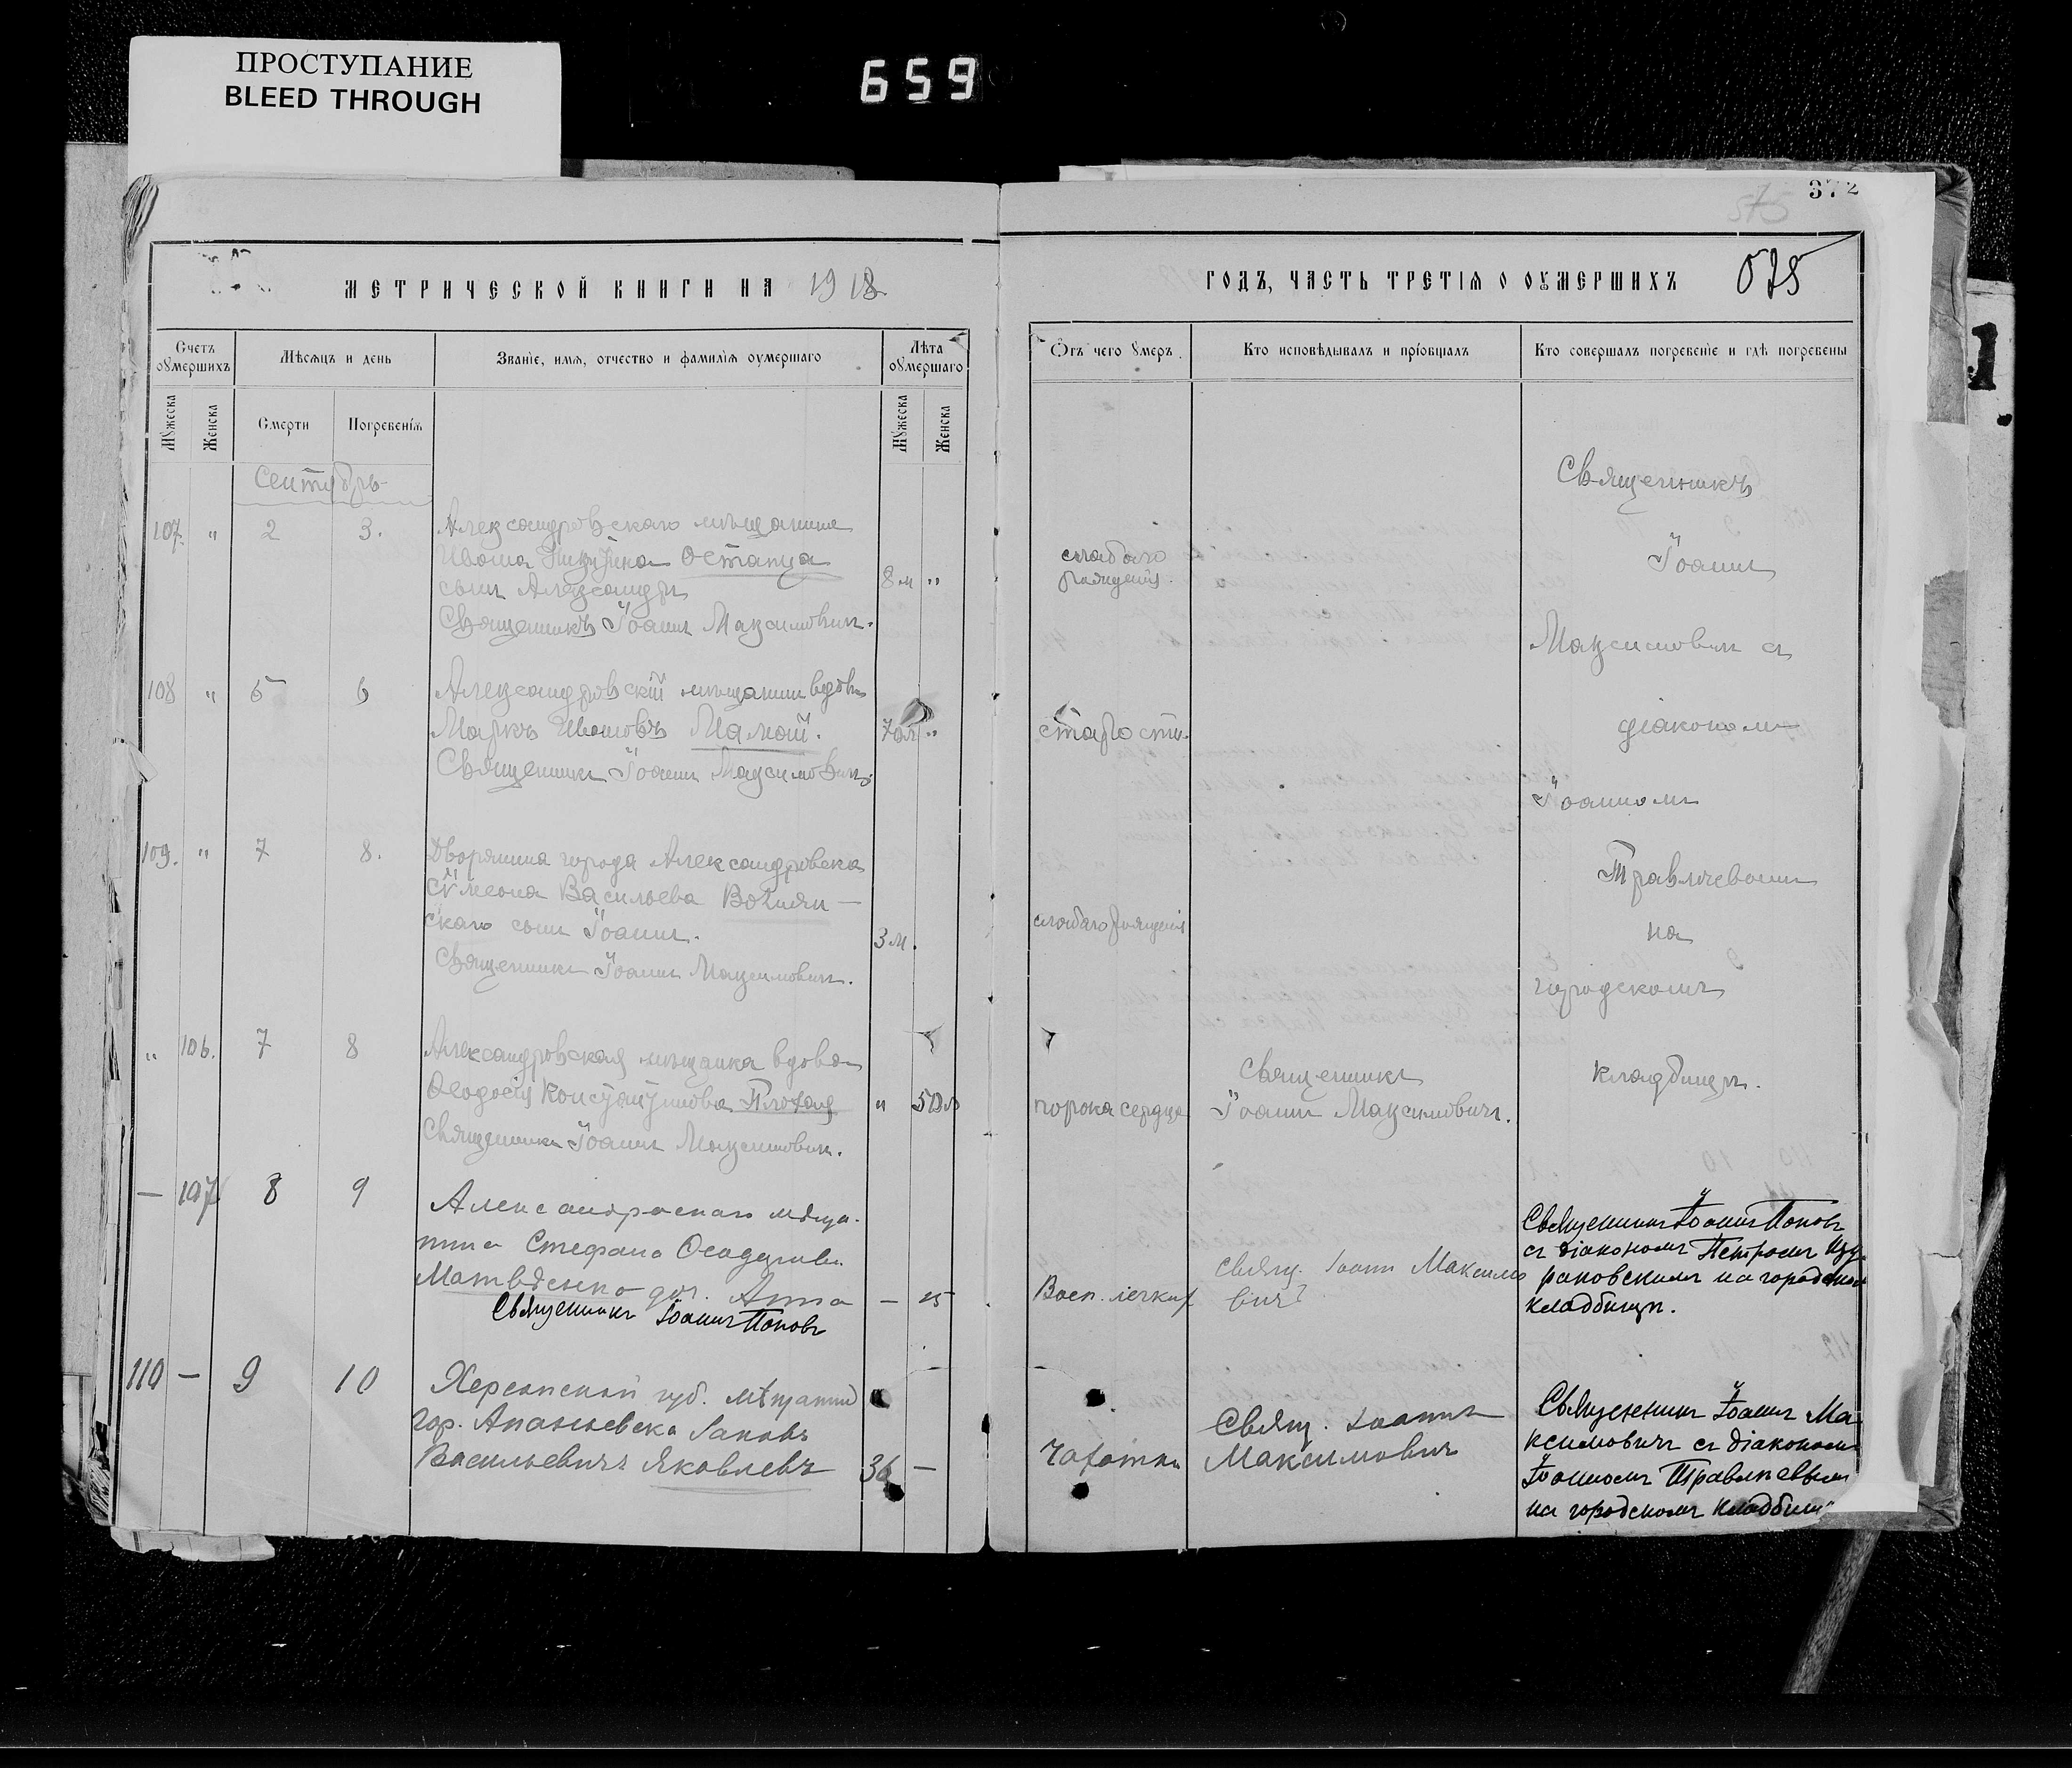 ПРОСТУПАНИЕ
BLEED THROUGH
659
372
575
МЕТРИЧЕСКОЙ КНИГИ НА 1918
ГОДЪ, ЧАСТЬ ТРЕТІЯ О ОУМЕРШИХЪ
575
Счетъ оумершихъ
Мѣсяцъ и день
Званіе, имя, отчество и фамилія оумершаго
Лѣта оумершаго
Отъ чего умеръ.
Кто исповѣдывалъ и пріобщалъ
Кто совершалъ погребеніе и гдѣ погребены
Мужеска
Женска
Смерти
Погребенія
Мужеска
Женска
Сентябрь
107. " 2 3.
Александровскаго мѣщанина
Ивана Остапца
сынъ Александръ
8 м "
слабаго
рожденія.
Священникъ Іоаннъ Максимовичъ.
108 " 5 6
Александровскій мѣщанинъ вдовъ
Маркъ Ивановъ Мамай.
70 л "
старости.
Священникъ Іоаннъ Максимовичъ.
109. " 7 8.
Дворянина города Александровска
Сѵмеона Васильева Волян-
скаго сынъ Іоаннъ.
3 м.
слабаго рожденія
Священникъ Іоаннъ Максимовичъ.
" 106. 7 8
Александровская мѣщанка вдова
Ѳеодосія Константинова Плохая
" 50 л
порока сердца
Священникъ
Іоаннъ Максимовичъ.
Священникъ Іоаннъ Максимовичъ.
Священникъ
Іоаннъ
Максимовичъ съ
діакономъ
Іоанномъ
Травлѣевымъ
на
городскомъ
кладбищѣ.
— 107 8 9
Александровскаго мѣща-
нина Стефана
Матвѣенко доч. Анна
— 15
Восп. легких
свящ. Іоанн Максимо
вич
Священникъ Іоаннъ Поповъ
Священникъ Іоаннъ Поповъ
съ діакономъ Петромъ
на городском
кладбищѣ.
110 — 9 10
Херсонской губ. мѣщанин
гор. Ананьевска Іаковъ
Васильевичъ Яковлевъ
36 —
Чахотки
Свящ. Іоаннъ
Максимович
Священникъ Іоаннъ Ма-
ксимовичъ съ діакономъ
Іоанномъ Травлѣевымъ
на городскомъ кладбищѣ
1